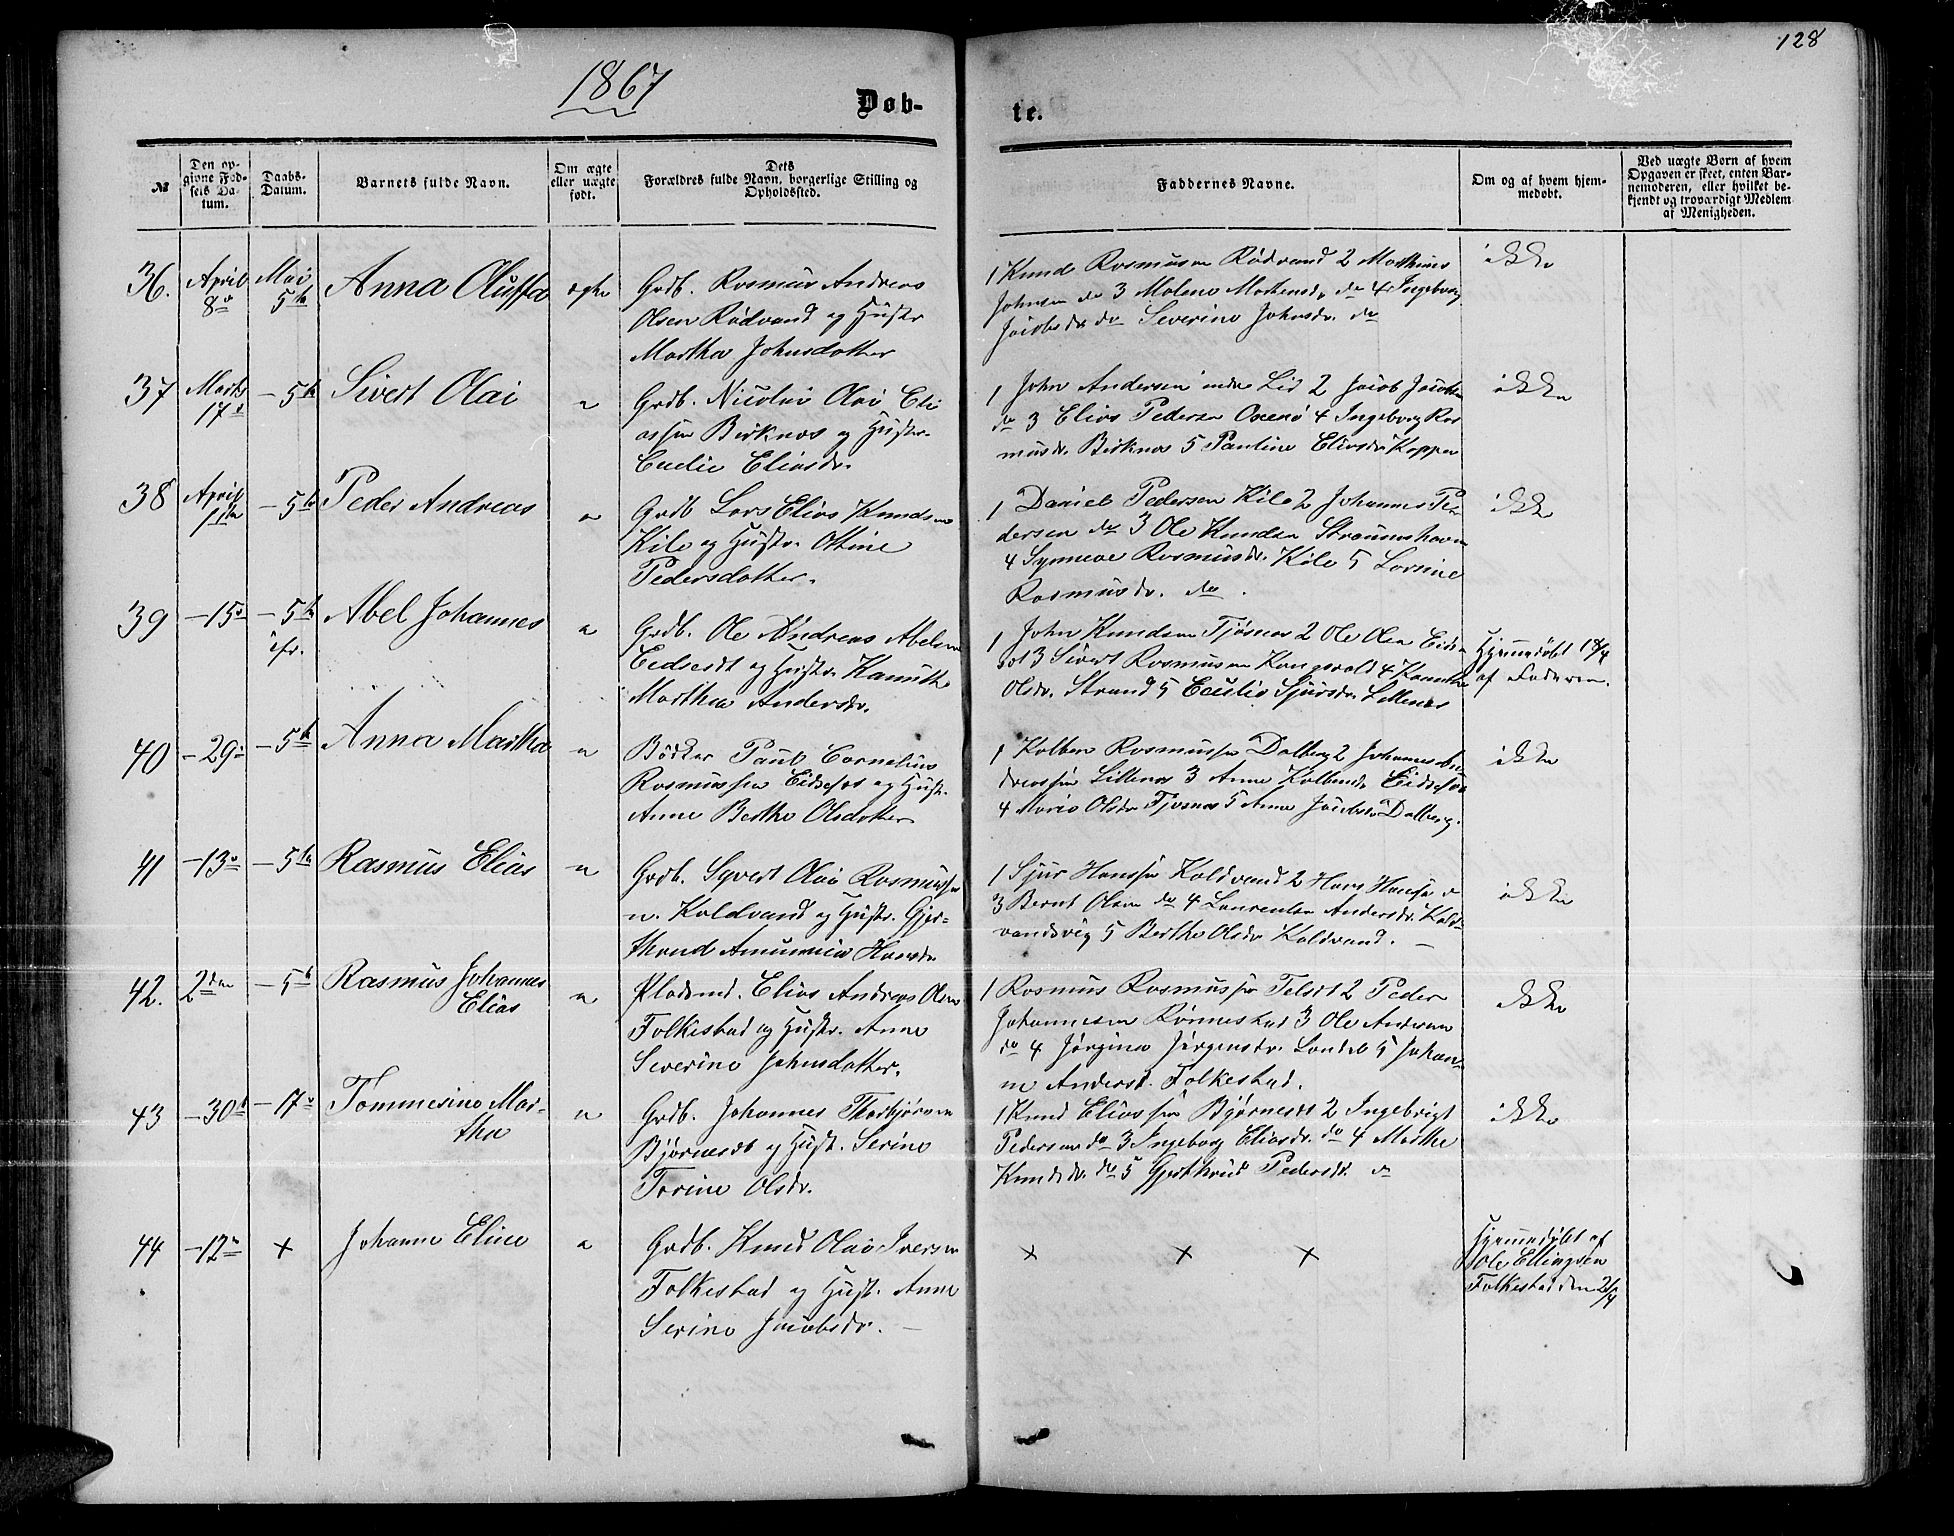 128
1867
Døb-
te.
№
Den op-
givne Fød-
sels Da-
tum.
Daabs-
Datum.
Barnets fulde Navn.
Om ægte
eller uægte
født.
Dets
Forældres fulde Navn, borgerlige Stilling og
Opholdssted.
Faddernes Navne.
Om og af hvem hjem-
medøbt.
Ved uægte Børn af hvem
Opgaven er skeet, enten Bar-
nemoderen, eller hvilket be-
kjendt og troværdigt Medlem
af Menigheden.
36.
April
8de
Mai
5te
Anna Oluffa
ægte
Grdb. Rasmus Andreas
Olsen Rødvand og Hustr.
Martha Johnsdatter
1 Knud Rasmusen Rødvand 2 Mathias
Johnsen do 3 Malene Mortensdr. do 4 Ingeborg
Jacobsdr. do Severine Johnsdr. do
ikke
37
Marts
17de
- 5te
Sivert Olai
"
Grdb. Nicolai Olai Eli-
assen Birknæs og Hustr.
Cecilie Eliasdr.
1 John Andersen indre Lid 2 Jacob Jacobsen
do 3 Elias Pedersen Oxenø 4 Ingeborg Ras
musdr. Birknæs 5 Pauline Eliasdr. Koppen
ikke
38
April
11te
- 5te
Peder Andreas
"
Grdb Lars Elias Knudsen
Kile og Hustr. Oline
Pedersdatter.
1 Daniel Pedersen Kile 2 Johannes Pe-
dersen do 3 Ole Knudsen Straumshavn
4 Synneve Rasmusdr. Kile 5 Lovise
Rasmusdr. do.
ikke
39
- 15de
- 5te
Abel Johannes
"
Grdb. Ole Andreas Abelsen
Eidset og Hustr.
Martha Andersdr.
1 John Knudsen Tjøsnæs 2 Ole Olsen
3 Sivert Rasmusen Kongsvold 4
Olsdr. Strand 5 Cecilie Sjursdr. Littenæs
Hjemmedøbt 18/4
af Faderen.
40
- 29de
- 5te
Anna Martha
"
Bødker Paul Cornelius
Rasmussen og Hustr.
Anne Berthe Olsdatter
1 Kolben Rasmussen Dalberg 2 Johannes An
dreassen Littenæs 3 Anne Kolbensdr.
4 Marie Olsdr. Tjøsnæs 5 Anne Jacobsdr. Dalberg.
ikke
41
- 13de
- 5te
Rasmus Elias
"
Grdb. Syvert Olai Rasmussen
n. Koldvand og Hustr. Gjer-
thrud Hansdr.
1 Sjur Hanssen Koldvand 2 Hans Hansen do
3 Bernt Olsen do 4 Andersdr. Kold-
vandsvig 5 Berthe Olsdr. Koldvand. -
ikke
42.
2den
- 5te
Rasmus Johannes
Elias
"
Pladsmd. Elias Andreas Olsen
Folkestad og Hustr. Anne
Severine Johnsdatter.
1 Rasmus Rasmussen 2 Peder
Johannesen Rønnestad 3 Ole Andersen
do 4 Jørgine Jørgensdr. 5 Johan-
ne Andersd. Folkestad.
ikke
43
- 30te
- 17de
Tommesine Mar-
tha
"
Grdb. Johannes Thorbjørnsen
Bjørneset og Hustr. Serine
Torine Olsdr.
1 Knud Eliassen Bjørneset 2 Ingebrigt
Pedersen do 3 Ingeborg Eliasdr. do 4 Marthe
Knudsdr. do 5 Gjerthrud Pedersdr. do
ikke
44
- 12te
+
Johanne Eline
"
Grdb. Knud Olai Iversen
Folkestad og Hustr. Anne
Serine Jacobsdr. -
+ + +
Hjemmedøbt af
Ole Ellingsen
Folkestad den 21/4